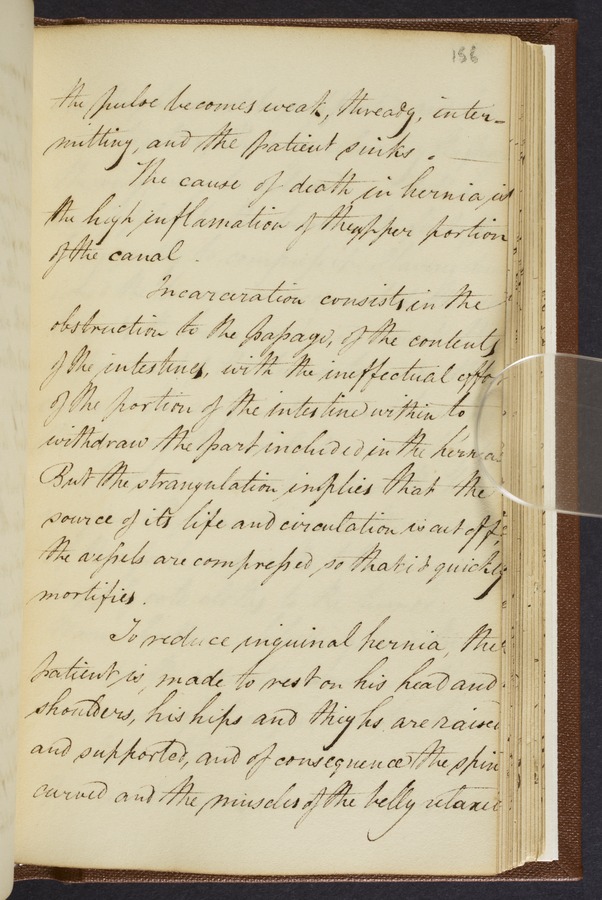 156
the pulse becomes weak, thready, inter-
mitting, and the patient sinks.
The cause of death in hernia is
the high inflamation of the upper portion
of the canal.
Incarceration consists in the
obstruction to the passage, of the contents
of the intestines, with the ineffectual effo
of the portion of the intestine within to
withdraw the part included in the hernia
But the strangulation implies that the
source of its life and circulation is cut off
the vessels are compressed so that it quickly
mortifies.
To reduce inguinal hernia, the
patient is made to rest on his head and
shoulders, his hips and thighs are raised
and supported, and of consequence the spin
curved and the muscles of the belly relaxed